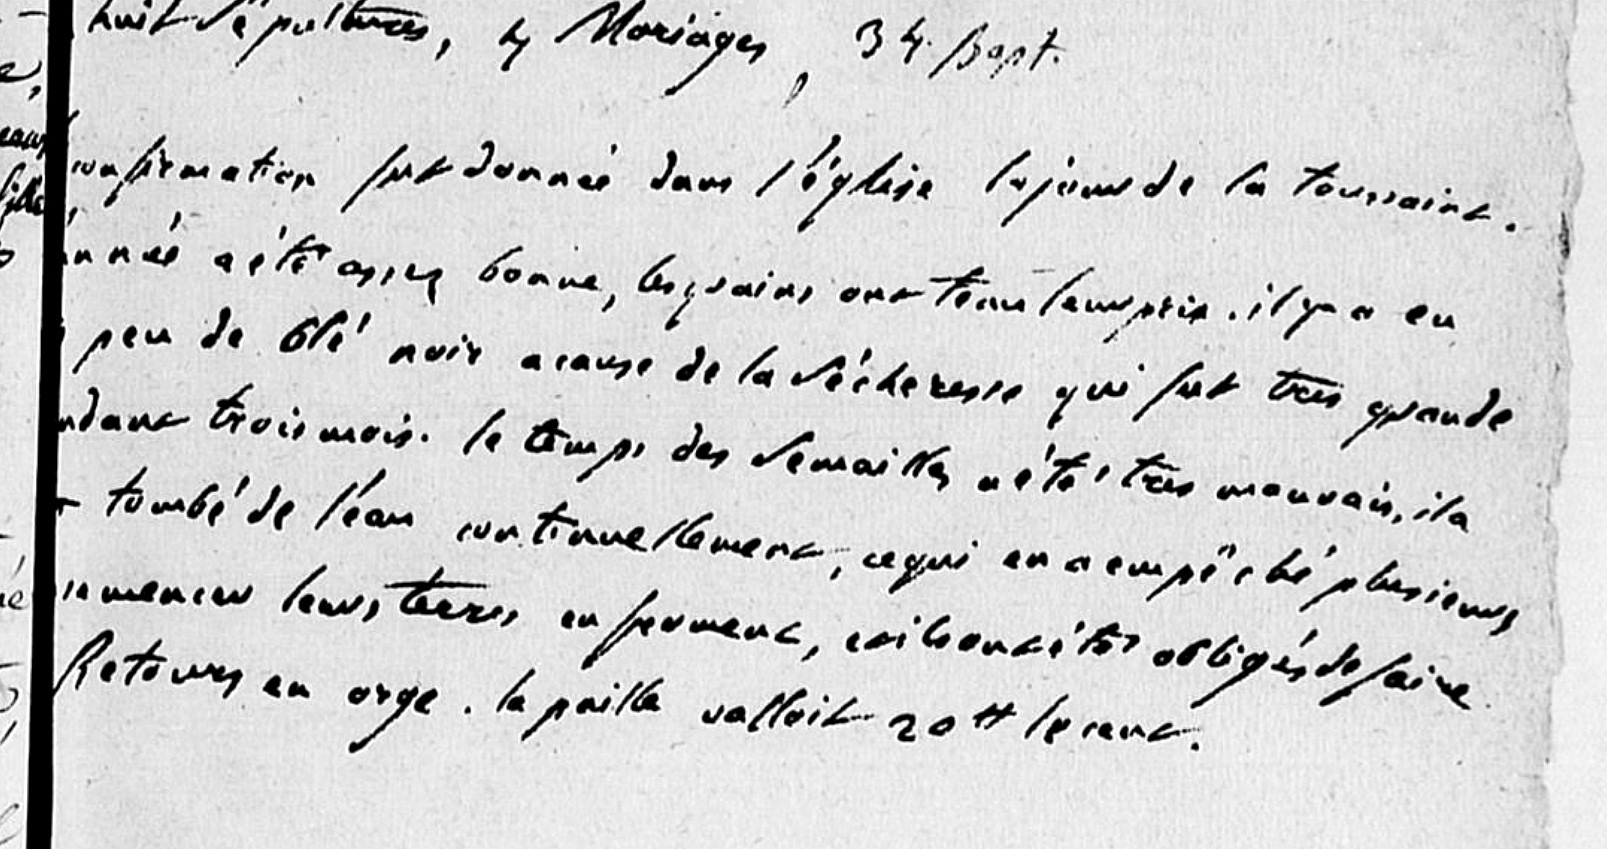 huit Sépultures, 4 Mariages, 34 bapt.
confirmation fut donnée dans l'église le jour de la toussaint.
année a été assez bonne, les grains ont tenu leur prix. il y a eu
peu de blé noir a cause de la Sécheresse qui fut tres grande
ndant trois mois. le temps des Semailles a été tres mauvais, il a
tombé de l'eau continuellement, ce qui en a empêché plusieurs
emencer leurs terres en froment, et ils ont été obligés de faire
Retours en orge. la paille valloit 20 tt le cent.